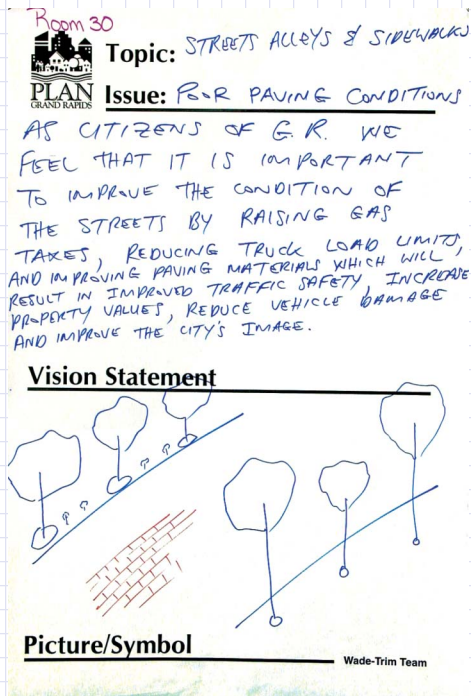 Room 30
Topic: STREETS ALLEYS & SIDEWALKS
PLAN
GRAND RAPIDS
Issue: POOR PAVING CONDITIONS
AS CITIZENS OF G.R. WE
FEEL THAT IT IS IMPORTANT
TO IMPROVE THE CONDITION OF
THE STREETS BY RAISING GAS
TAXES, REDUCING TRUCK LOAD LIMITS,
AND IMPROVING PAVING MATERIALS WHICH WILL
RESULT IN IMPROVED TRAFFIC SAFETY, INCREASE
PROPERTY VALUES, REDUCE VEHICLE DAMAGE
AND IMPROVE THE CITY'S IMAGE.
Vision Statement
Picture/Symbol
Wade-Trim Team